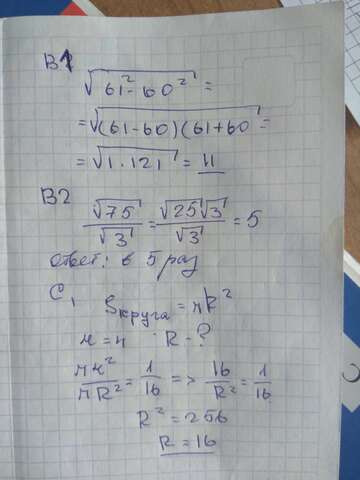 В1
√(61² - 60²) =
= √((61-60)(61+60)) =
= √(1·121) = 11
В2
√75/√3 = √25√3/√3 = 5
Ответ: в 5 раз
C₁
Sкруга = πR²
r = 4 R - ?
πr²/πR² = 1/16 => 16/R² = 1/16
R² = 256
R = 16